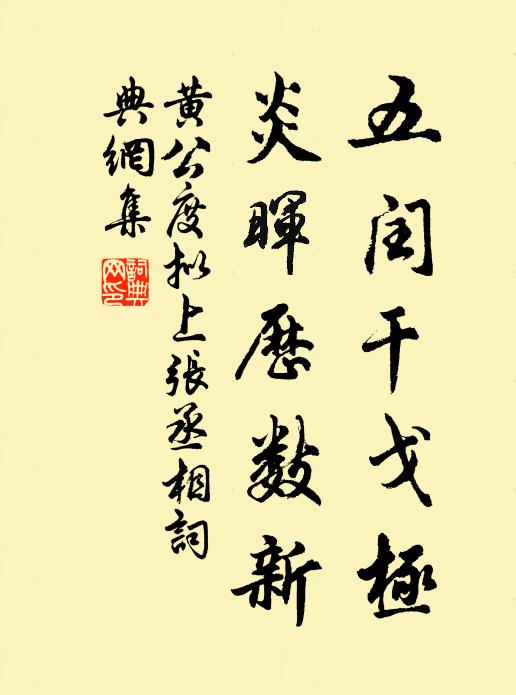 五闰干戈極
炎暉歷數新
黄公度拟上張丞相詞
典網集
詞典网印